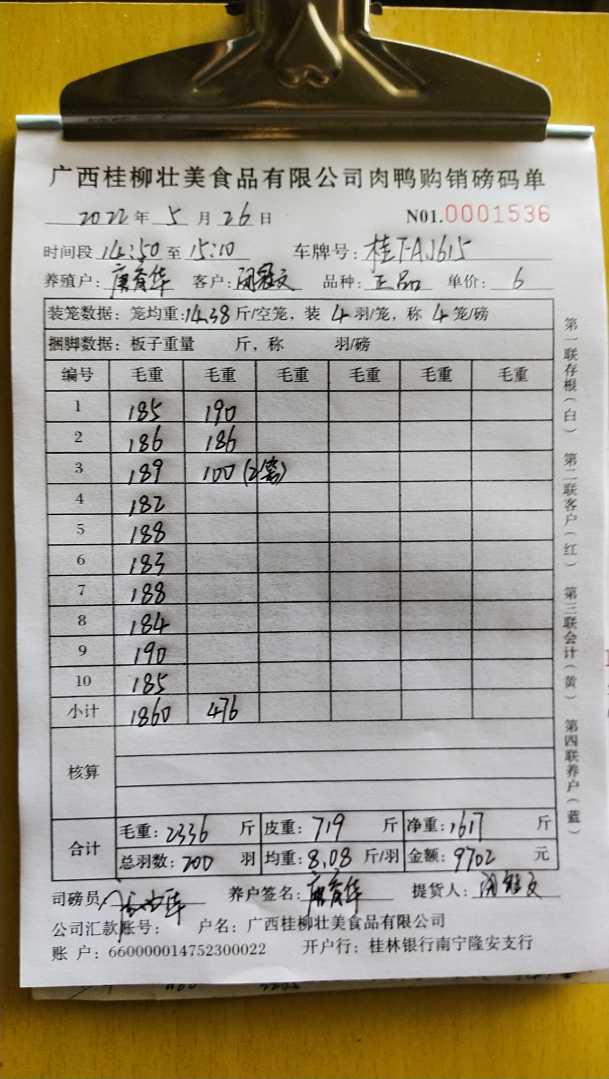 广西桂柳壮美食品有限公司肉鸭购销磅码单
2022年 5 月 26 日 N01.0001536
时间段 14:50 至 15:10 车牌号: 桂T-AJ615
养殖户: 唐育华 客户: 品种: 正品 单价: 6
装笼数据: 笼均重:14.38斤/空笼, 装 4 羽/笼, 称 4 笼/磅
捆脚数据: 板子重量 斤, 称 羽/磅
编号 毛重 毛重 毛重 毛重 毛重 毛重
1 185 190
2 186 186
3 189 100 (2笼)
4 182
5 188
6 183
7 188
8 184
9 190
10 185
小计 1860 476
核算
合计 毛重: 2336 斤 皮重: 719 斤 净重: 1617 斤
总羽数: 200 羽 均重: 8.08 斤/羽 金额: 9702 元
司磅员 养户签名: 唐育华 提货人:
公司汇款账号: 户名: 广西桂柳壮美食品有限公司
账 户: 660000014752300022 开户行: 桂林银行南宁隆安支行
第一联存根(白) 第二联客户(红) 第三联会计(黄) 第四联养户(蓝)